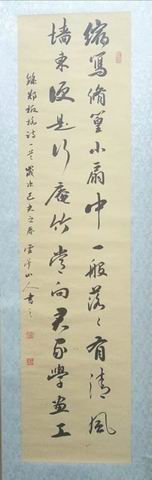 縮寫脩篁小扇中一般落〻有清風
墻東便是行庵竹常向君家學畫工
錄鄭板橋詩一首歲次己亥之春雲峰山人書之